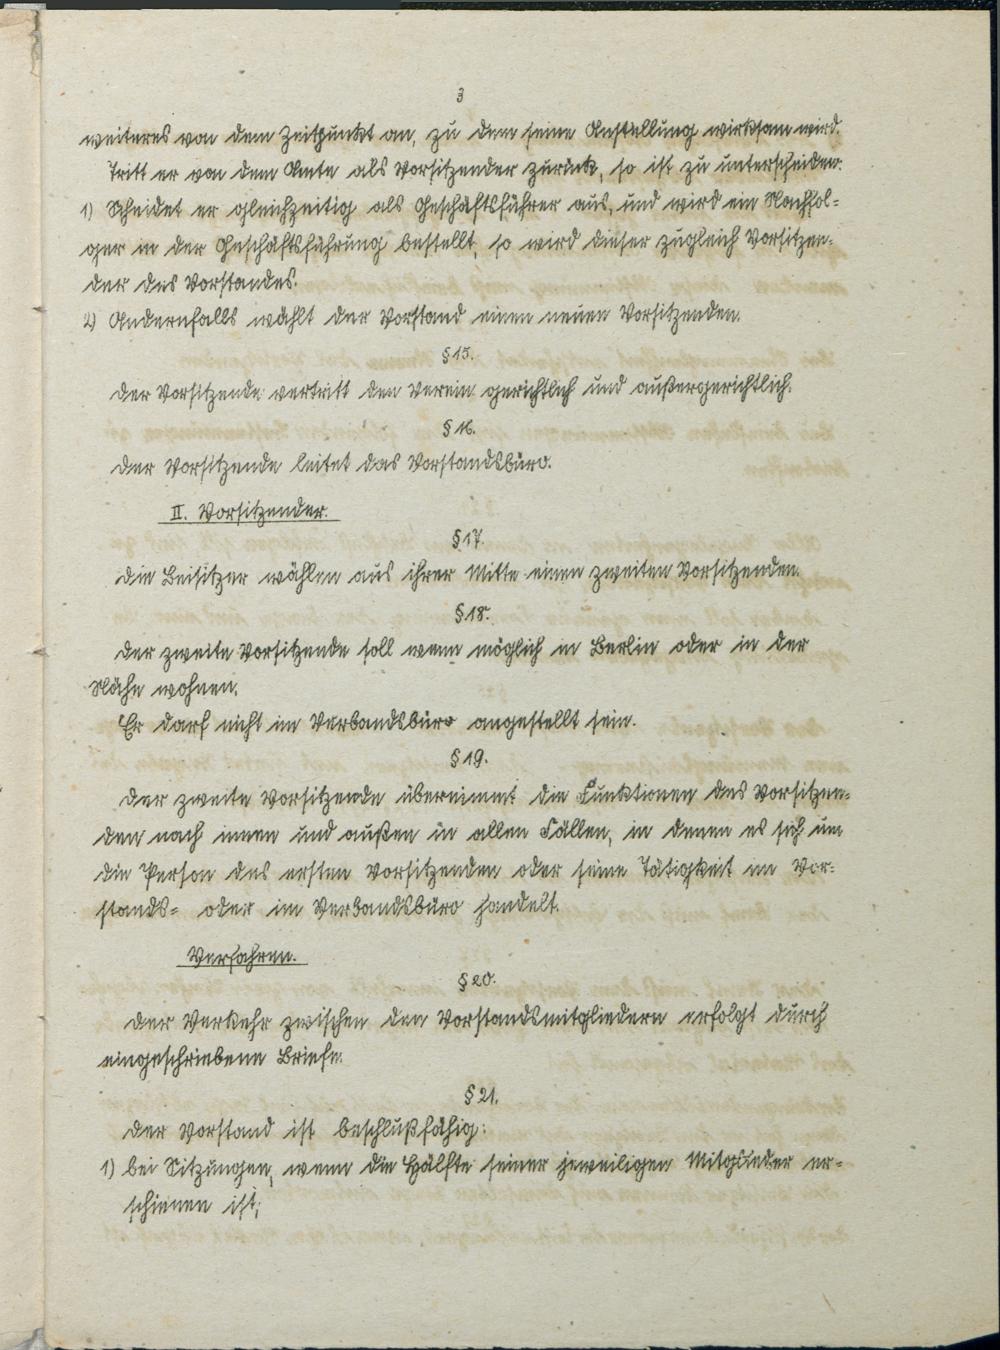 3
weiteres von dem Zeitpunkt an, zu dem seine Anstellung wirksam wird.
Tritt er von dem Amte als Vorsitzender zurück, so ist zu unterscheiden:
1) Scheidet er gleichzeitig als Geschäftsführer aus, und wird ein Nachfol-
ger in der Geschäftsführung bestellt, so wird dieser zugleich Vorsitzen-
der des Vorstandes.
2) Andernfalls wählt der Vorstand einen neuen Vorsitzenden.
§ 15.
Der Vorsitzende vertritt den Verein gerichtlich und außergerichtlich.
§ 16.
Der Vorsitzende leitet das Vorstandsbüro.
II. Vorsitzender.
§ 17.
Die Beisitzer wählen aus ihrer Mitte einen zweiten Vorsitzenden.
§ 18.
Der zweite Vorsitzende soll wenn möglich in Berlin oder in der
Nähe wohnen.
Er darf nicht im Verbandsbüro angestellt sein.
§ 19.
Der zweite Vorsitzende übernimmt die Funktionen des Vorsitzen-
den nach innen und außen in allen Fällen, in denen es sich um
die Person des ersten Vorsitzenden oder seine Tätigkeit im Vor-
stands- oder im Verbandsbüro handelt.
Verfahren.
§ 20.
Der Verkehr zwischen den Vorstandsmitgliedern erfolgt durch
eingeschriebene Briefe.
§ 21.
Der Vorstand ist beschlußfähig:
1) bei Sitzungen, wenn die Hälfte seiner jeweiligen Mitglieder er-
schienen ist;